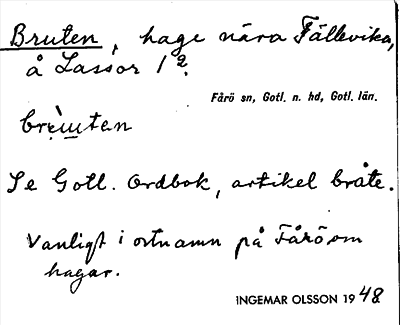 Bruten, hage nära Fällevika,
å Lassor 1 2.
Fårö sn, Gotl. n. hd, Gotl. län.
brèu̲tan
Se Gotl. Ordbok, artikel bråte.
Vanligt i ortnamn på Fårö om
hagar.
INGEMAR OLSSON 1948